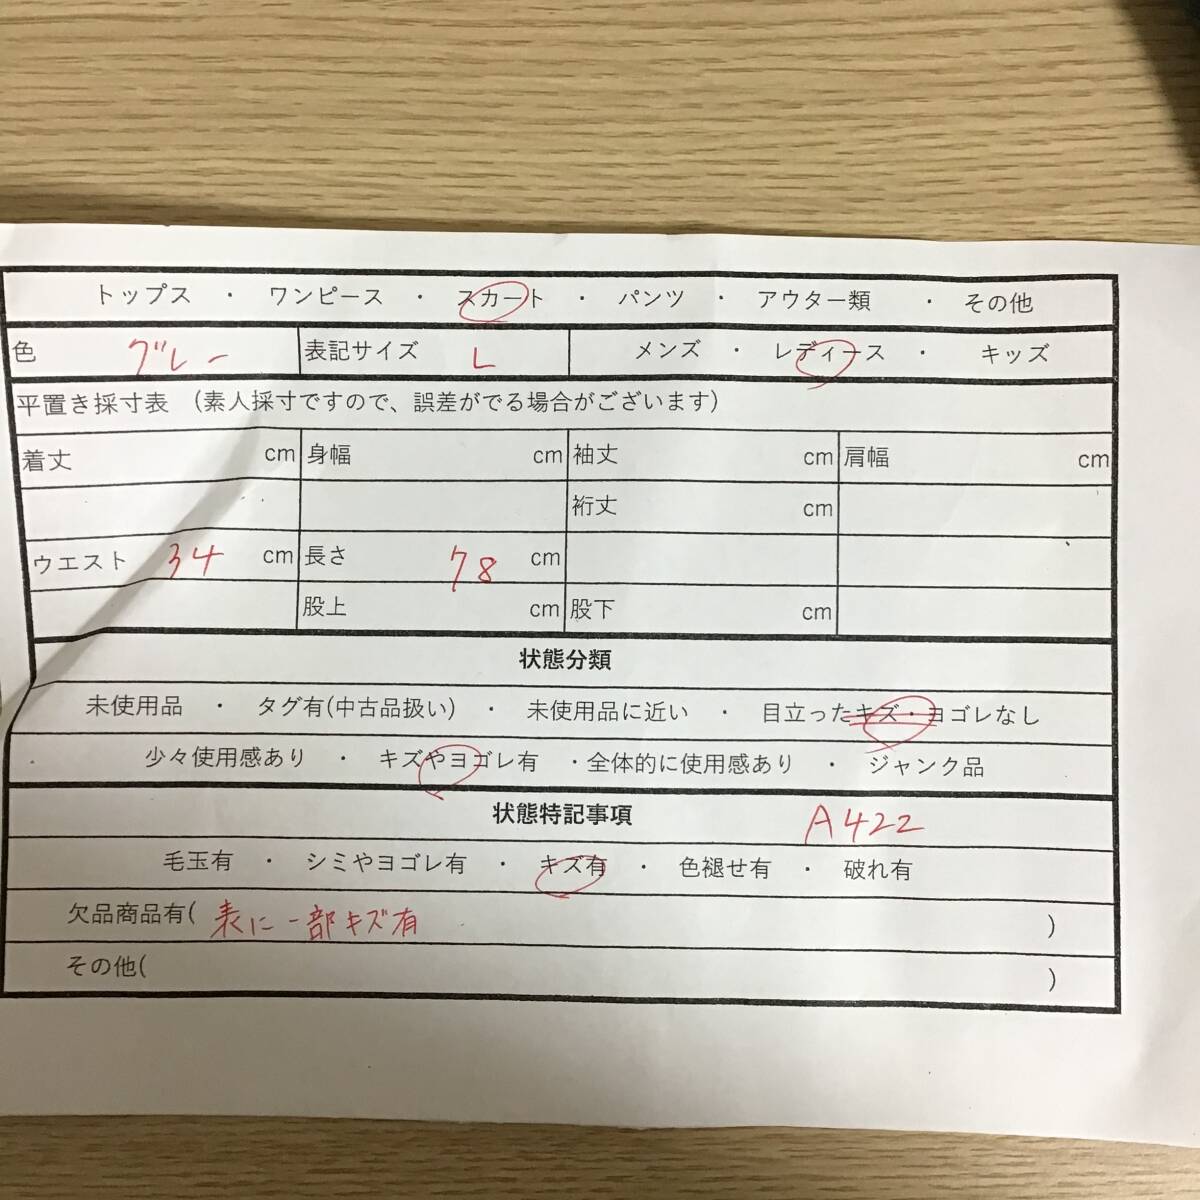 トップス ・ ワンピース ・ スカート ・ パンツ ・ アウター類 ・ その他
色 グレー 表記サイズ L メンズ ・ レディース ・ キッズ
平置き採寸表 (素人採寸ですので、誤差がでる場合がございます)
着丈 cm 身幅 cm 袖丈 cm 肩幅 cm
裄丈 cm
ウエスト 34 cm 長さ 78 cm
股上 cm 股下 cm
状態分類
未使用品 ・ タグ有(中古品扱い) ・ 未使用品に近い ・ 目立ったキズ・ヨゴレなし
少々使用感あり ・ キズやヨゴレ有 ・全体的に使用感あり ・ ジャンク品
状態特記事項 A422
毛玉有 ・ シミやヨゴレ有 ・ キズ有 ・ 色褪せ有 ・ 破れ有
欠品商品有( 表に一部キズ有 )
その他( )